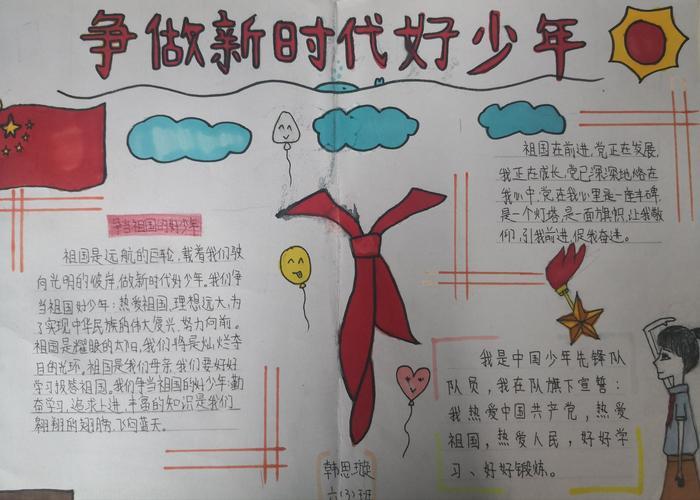 争做新时代好少年
争当祖国的好少年
祖国是远航的巨轮，载着我们驶
向光明的彼岸，做新时代好少年。我们争
当祖国好少年：热爱祖国，理想远大，为
了实现中华民族的伟大复兴，努力向前。
祖国是耀眼的太阳，我们将是灿烂夺
目的光环，祖国是我们母亲，我们要好好
学习报答祖国。我们争当祖国的好少年：勤
奋学习，追求上进，丰富的知识是我们
翱翔的翅膀，飞向蓝天。
祖国在前进，党正在发展，
我正在成长，党已深深地烙在
我心中，党在我心里是一座丰碑，
是一个灯塔，是一面旗帜，让我敬
仰，引我前进，促我奋进。
我是中国少年先锋队
队员，我在队旗下宣誓：
我热爱中国共产党，热爱
祖国，热爱人民，好好学
习、好好锻炼。
韩思璇
六(3)班